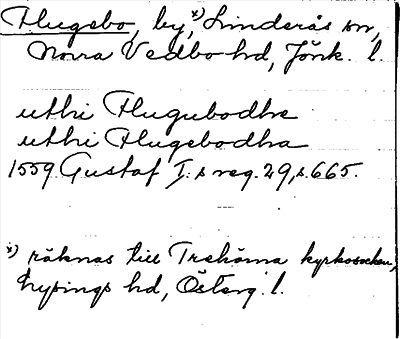 Flugebo, by,ˣ⁾ Linderås sn,
Norra Vedbo hd, Jönk. l.
uthi Flugubodhe
uthi Flugebodha
1559 Gustaf I:s reg. 29, s. 665.
ˣ⁾ räknas till Trehörna kyrkosocken,
Lysings hd, Österg. l.